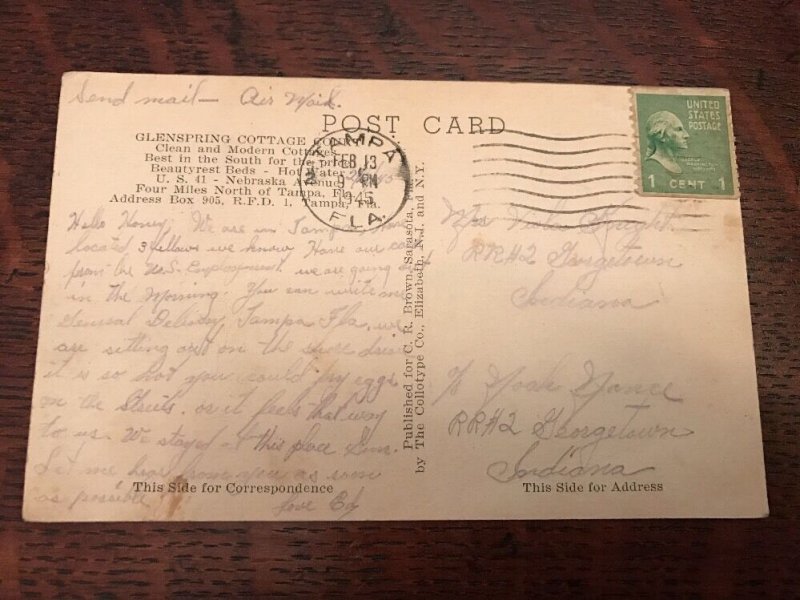 Send mail – Air Mail.
POST CARD
GLENSPRING COTTAGE
Clean and Modern Cottages
Best in the South for the price
Beautyrest Beds - Hot Water
U. S. 41 - Nebraska Avenue
Four Miles North of Tampa, Fla.
Address Box 905, R.F.D. 1, Tampa, Fla.
TAMPA
FEB 13
9 PM
1945
FLA.
UNITED
STATES
POSTAGE
1 CENT 1
Hello Honey, We are in Tampa Have
located 3 fellows we know Have our
from the U.S. Employment we are going
in the Morning. You can write me
General Delivery, Tampa Fla, we
are sitting out on the
it is so hot you could fry eggs
on the Streets. or it feels that way
to us. We stayed at this place Sun.
Let me hear from you as soon
as possible
Love Ed
Published for C. R. Brown, Sarasota,
by The Collotype Co., Elizabeth, N.J. and N.Y.
Mrs Viola
RR#2 Georgetown
Indiana
% Noah Nance
RR#2 Georgetown
Indiana
This Side for Correspondence
This Side for Address